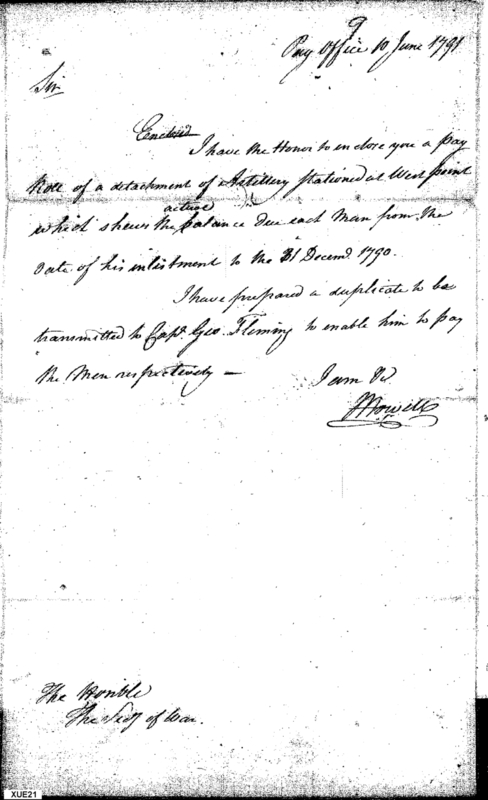 9
Pay Office 10 June 1791
Sir
Enclosed
I have the Honor to inclose you a pay
Roll of a detachment of Artillery stationed at West point
actual
which shews the balance due each Man from the
date of his inlistment to the 31 Decemr. 1790.
I have prepared a duplicate to be
transmitted to Capt. Geo. Fleming to enable him to pay
the Men respectively —
I am &c
JHowell
The Honble
The Secy of War.
XUE21